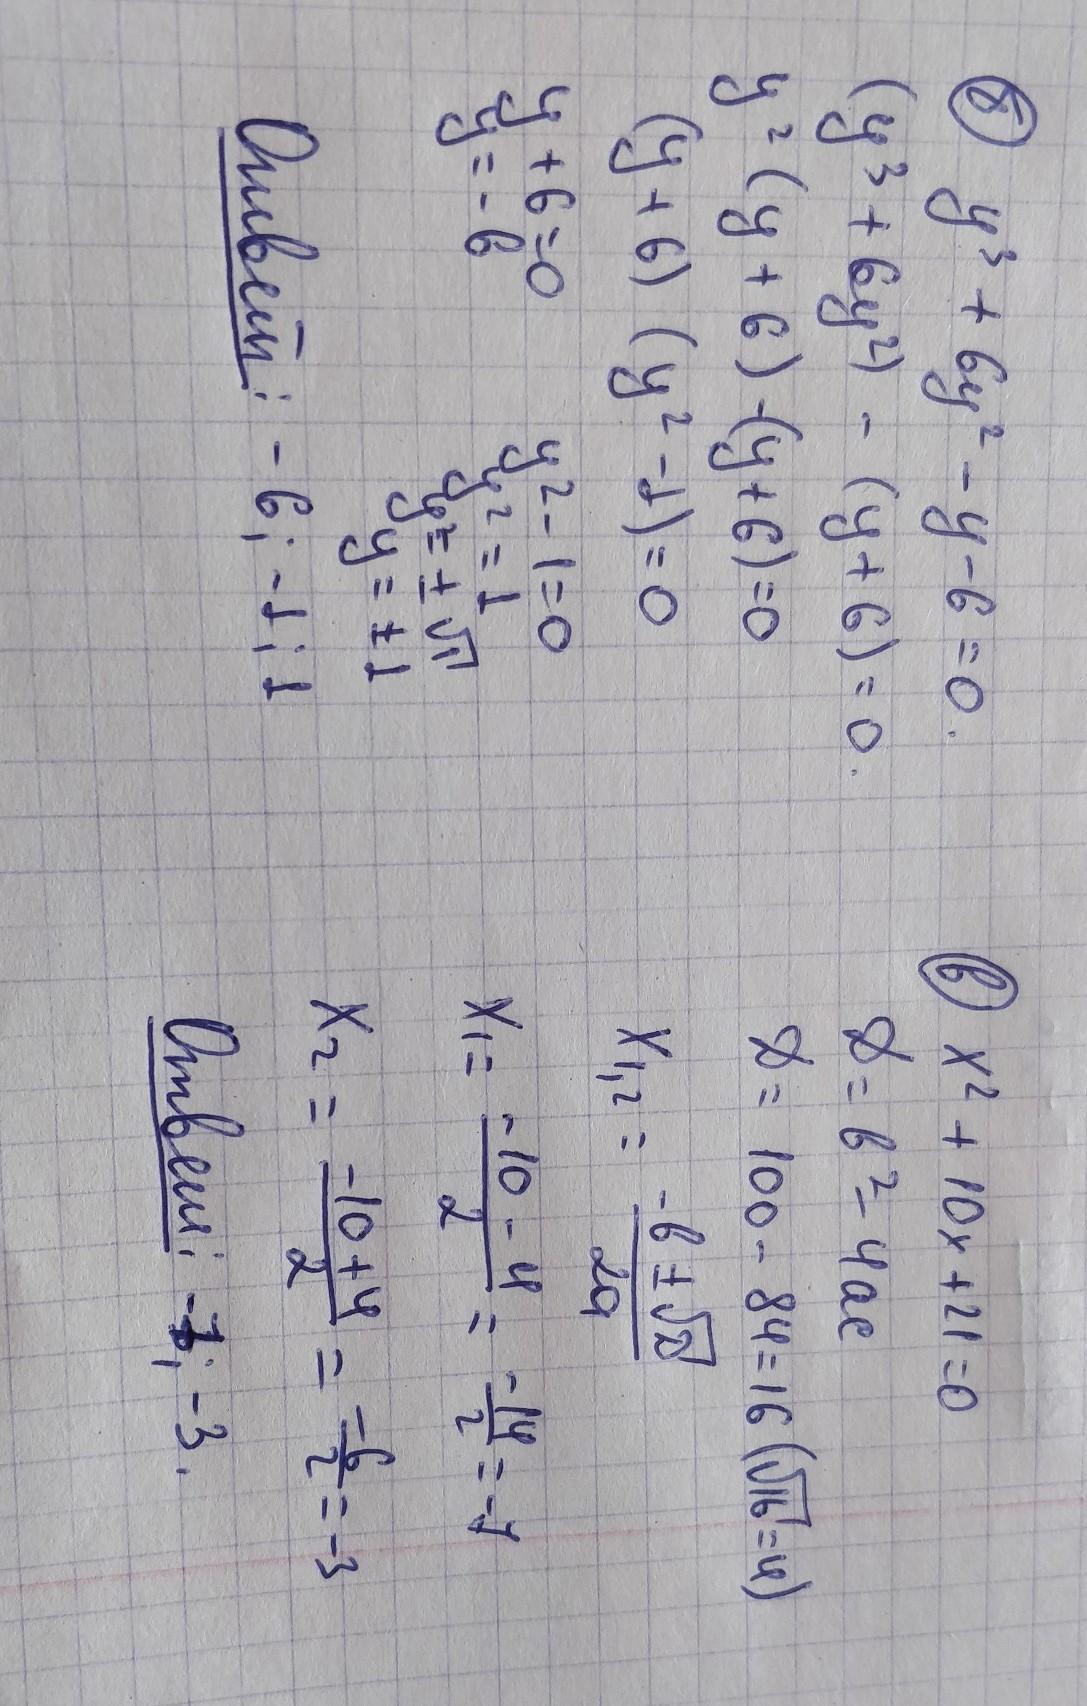 б) y³ + 6y² - y - 6 = 0.
(y³ + 6y²) - (y + 6) = 0.
y² (y + 6) - (y + 6) = 0
(y + 6) (y² - 1) = 0
y + 6 = 0
y = - 6
y² - 1 = 0
y² = 1
y = ± √1
y = ± 1
Ответ: - 6; - 1; 1
в) x² + 10x + 21 = 0
D = b² - 4ac
D = 100 - 84 = 16 (√16 = 4)
x₁,₂ = (-b ± √D) / 2a
x₁ = (-10 - 4) / 2 = -14 / 2 = -7
x₂ = (-10 + 4) / 2 = -6 / 2 = -3
Ответ: -7; -3.